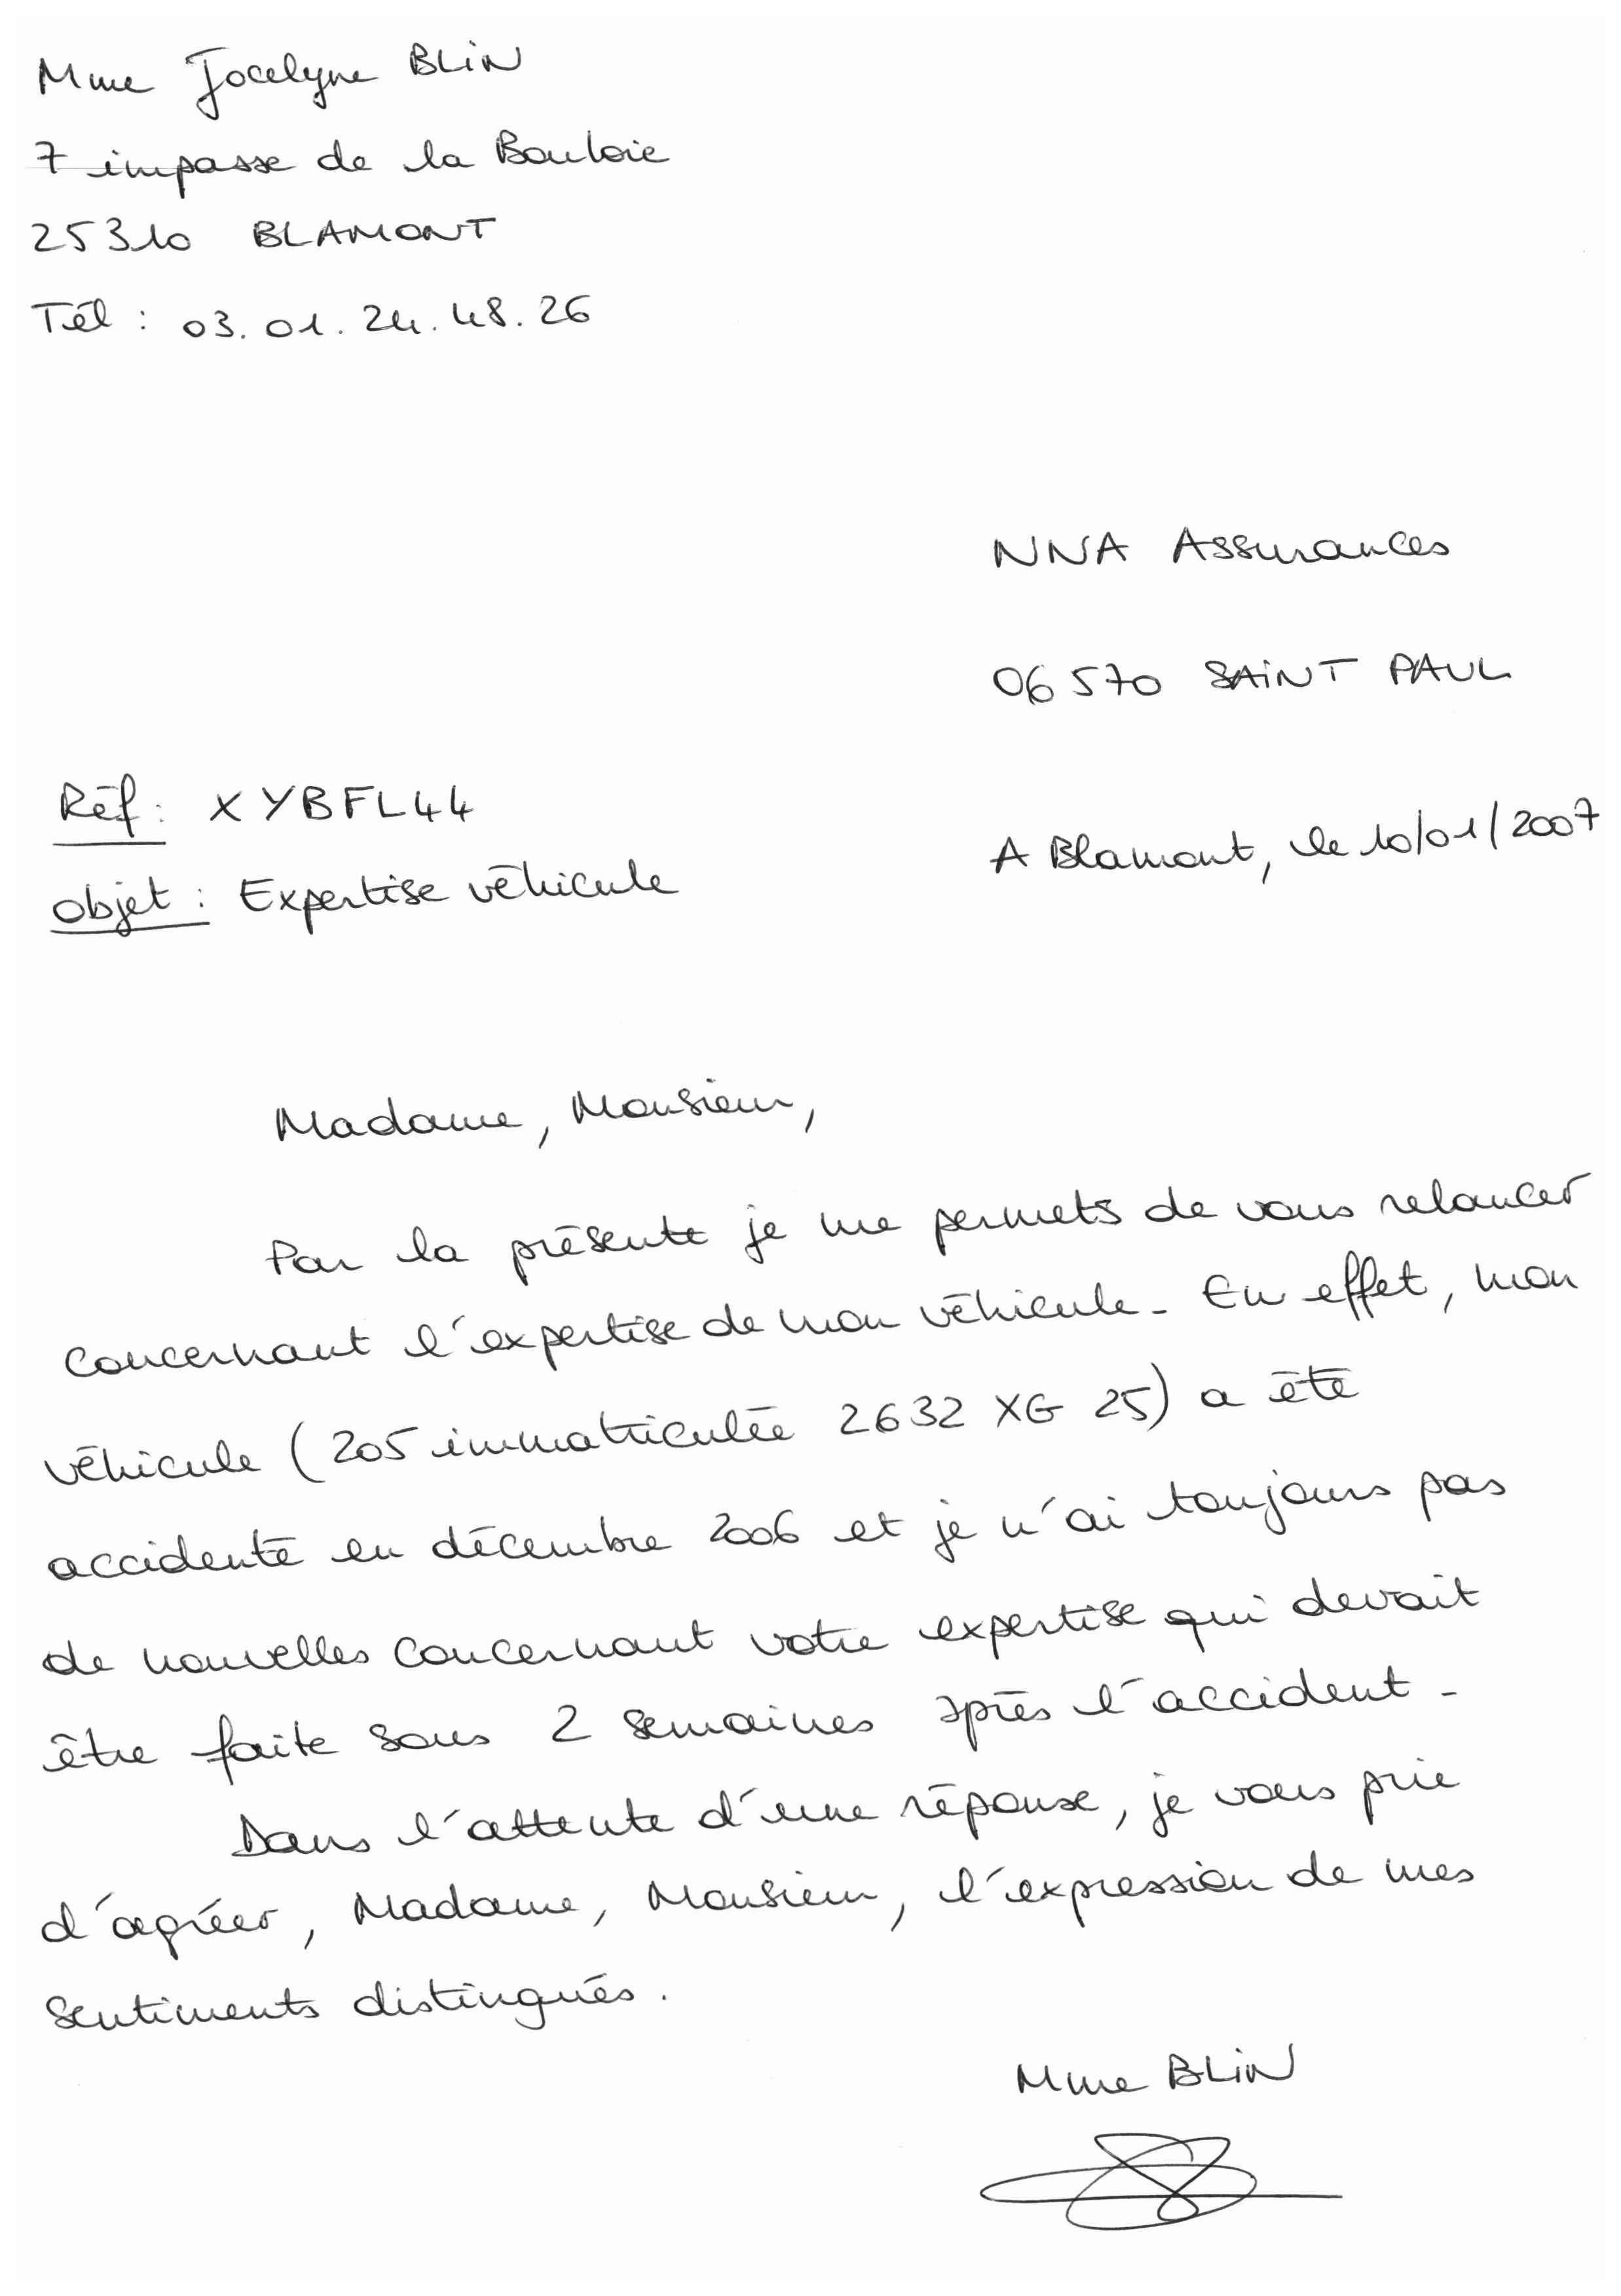 Mme Jocelyne BLIN
7 impasse de la Bouloie
25310 BLAMONT
Tél : 03.01.24.48.26
NNA Assurances
06570 SAINT PAUL
Réf : XYBFL44
A Blamont, le 10/01/2007
Objet : Expertise véhicule
Madame, Monsieur,
Par la présente je me permets de vous relancer
concernant l'expertise de mon véhicule. En effet, mon
véhicule (205 immatriculée 2632 XG 25) a été
accidenté en décembre 2006 et je n'ai toujours pas
de nouvelles concernant votre expertise qui devait
être faite sous 2 semaines après l'accident.
Dans l'attente d'une réponse, je vous prie
d'agréer, Madame, Monsieur, l'expression de mes
sentiments distingués.
Mme BLIN